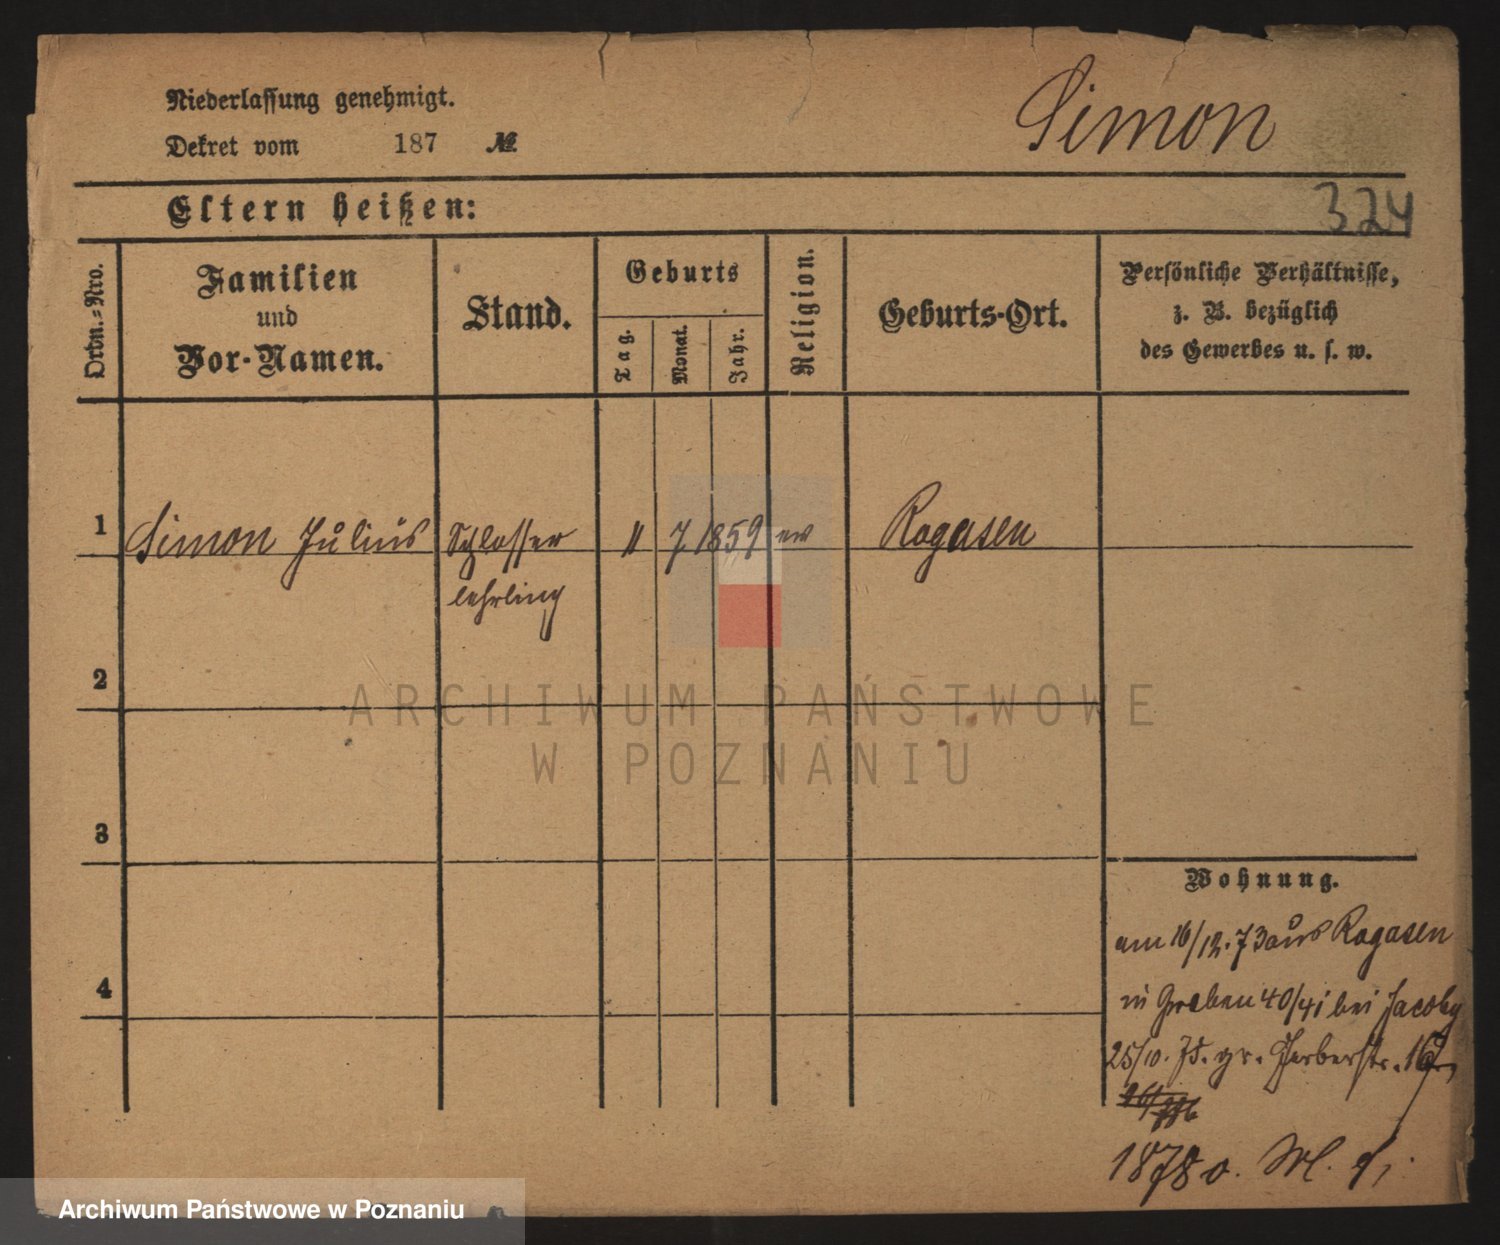 Niederlassung genehmigt.
Simon
Dekret vom 187 №
Eltern heißen:
324
Ordn.-Nro.
Familien
und
Vor-Namen.
Stand.
Geburts
Tag.
Monat.
Jahr.
Religion.
Geburts-Ort.
Persönliche Verhältnisse,
z. B. bezüglich
des Gewerbes u. s. w.
1 Simon Julius Schlosser 11 7 1859 ev Rogasen
lehrling
2
3
4
Wohnung.
am 16/12.73 aus Rogasen
in Graben 40/41 bei Jacoby
25/10. 75. gr. Gerberstr. 16
1878 o. M.
ARCHIWUM PAŃSTWOWE
W POZNANIU
Archiwum Państwowe w Poznaniu